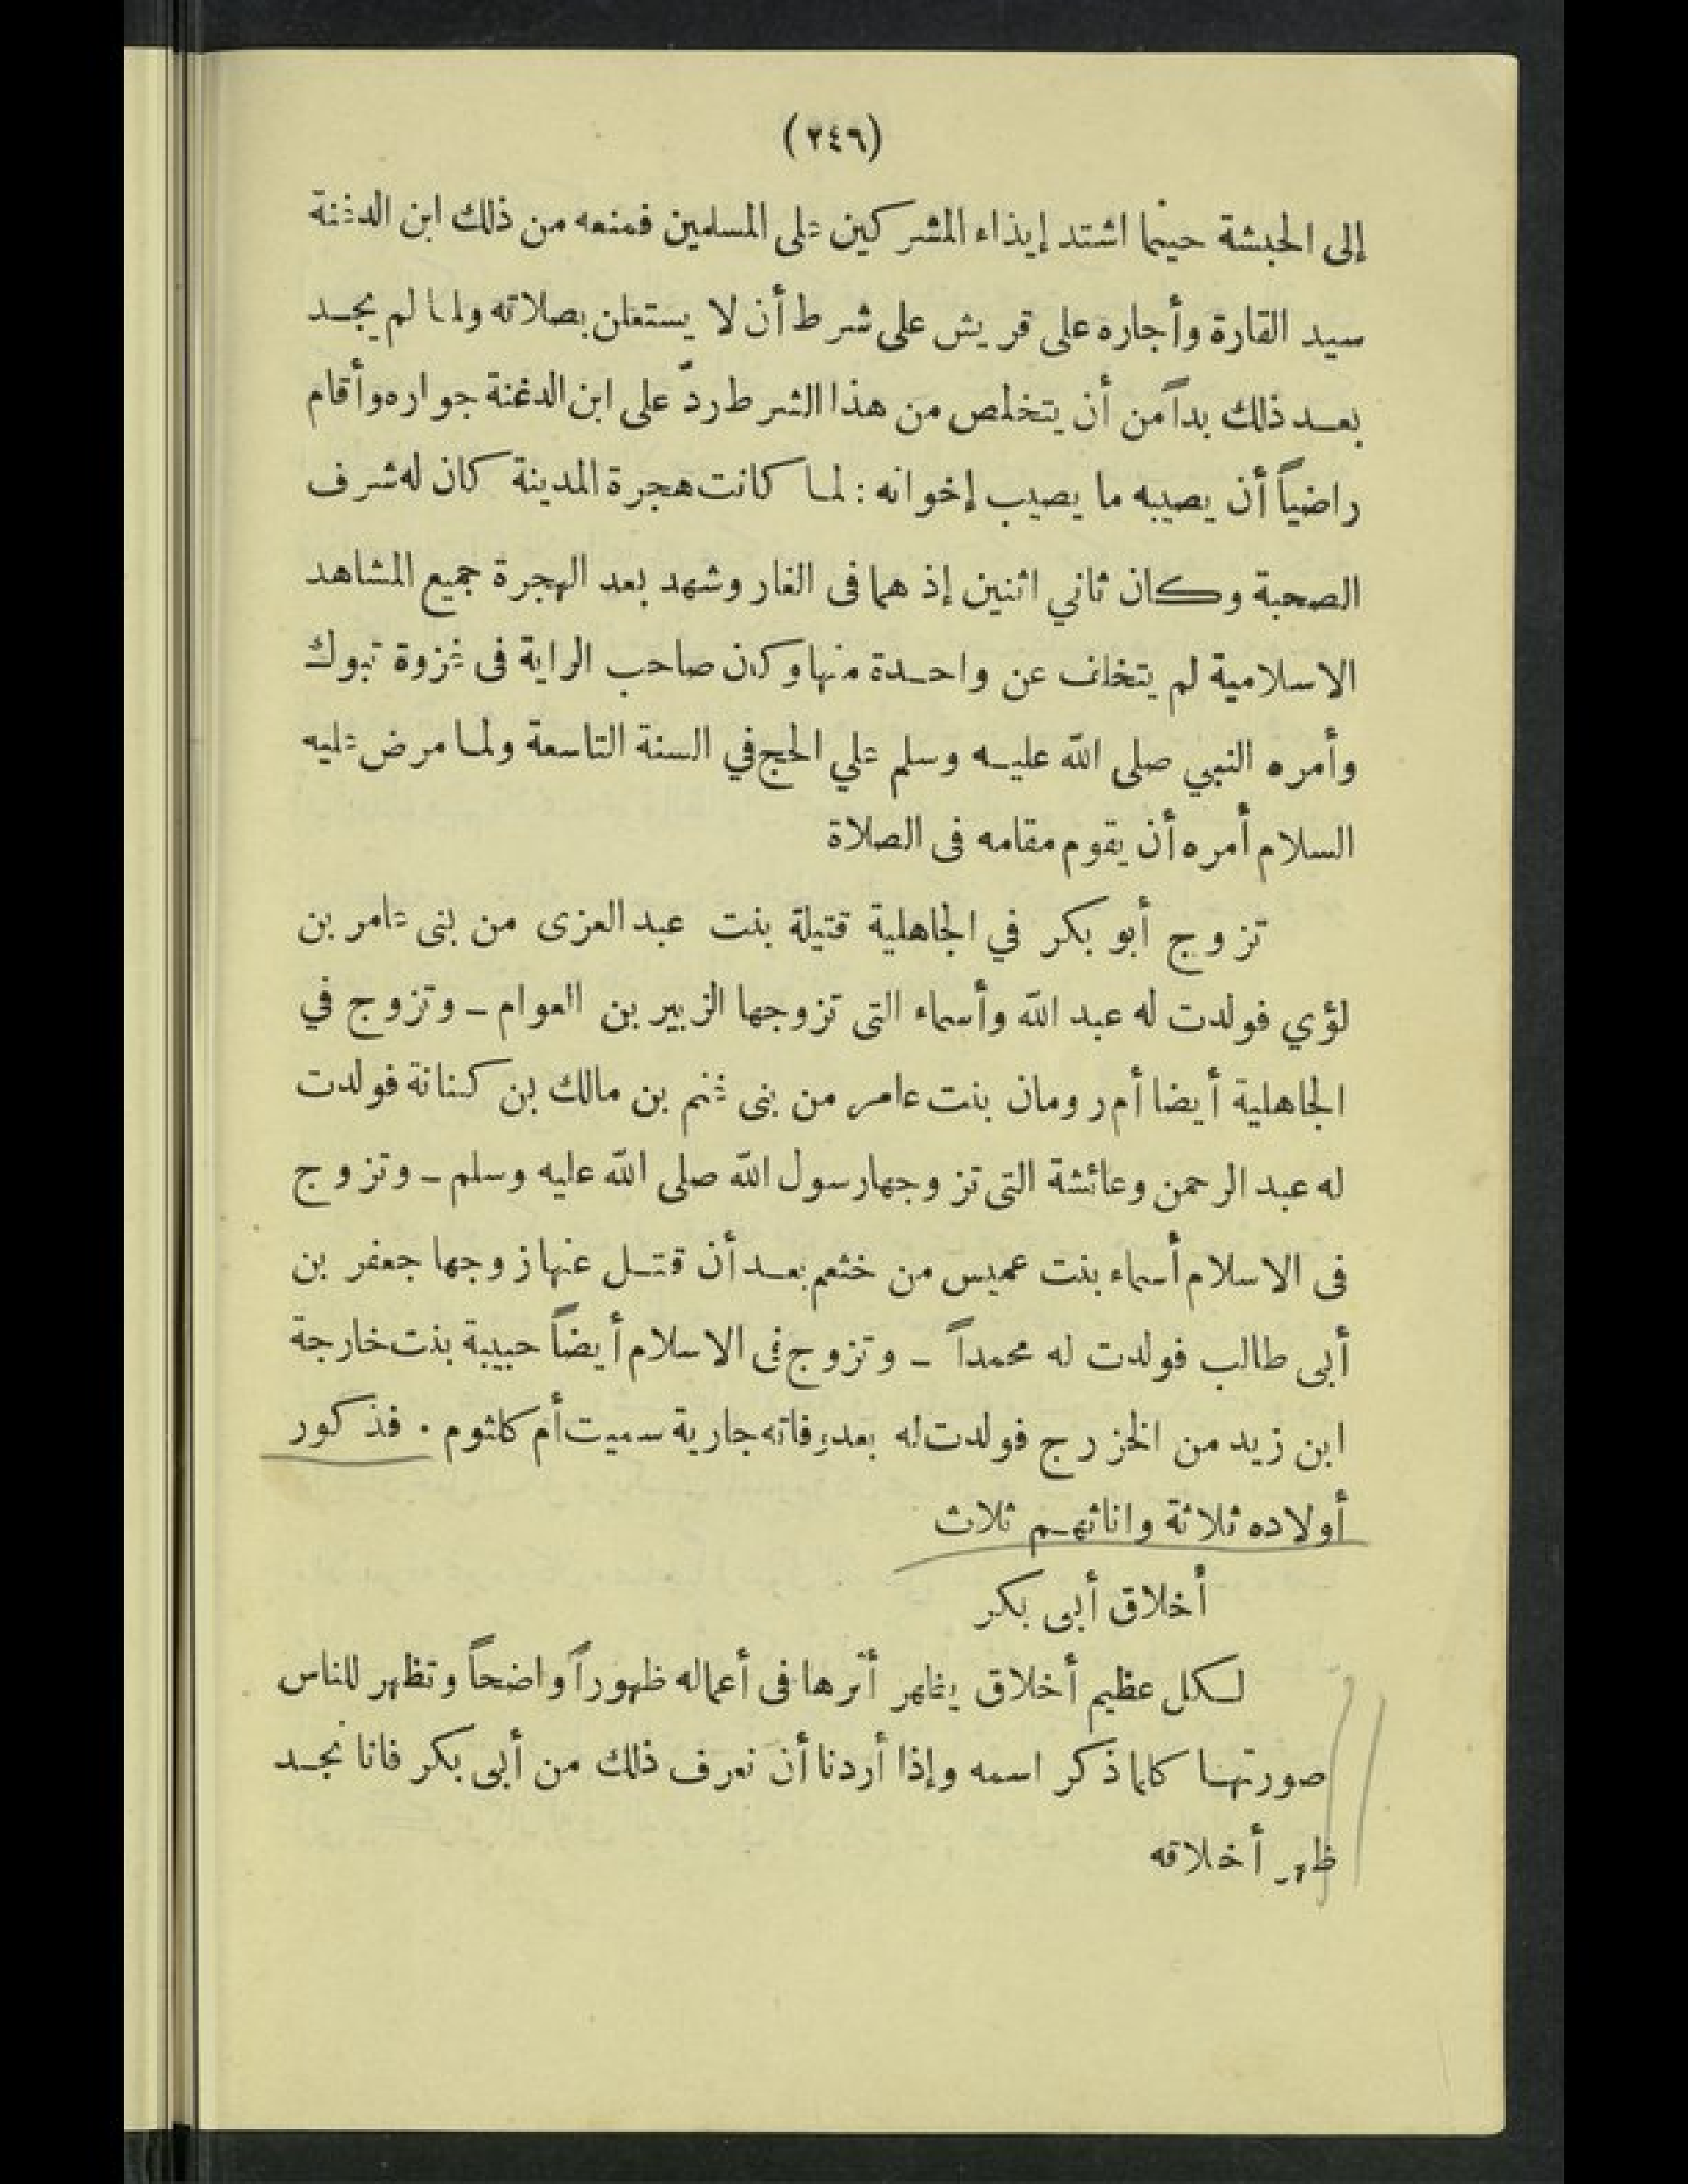 (٢٤٦)
إلى الحبشة حينما اشتد إيذاء المشركين على المسلمين فمنعه من ذلك ابن الدغنة
سيد القارة وأجاره على قريش على شرط أن لا يستعلن بصلاته ولما لم يجد
بعد ذلك بداً من أن يتخلص من هذا الشرط ردّ على ابن الدغنة جواره وأقام
راضياً أن يصيبه ما يصيب إخوانه : لما كانت هجرة المدينة كان له شرف
الصحبة وكان ثاني اثنين إذ هما فى الغار وشهد بعد الهجرة جميع المشاهد
الاسلامية لم يتخلف عن واحدة منها وكان صاحب الراية فى غزوة تبوك
وأمره النبي صلى الله عليه وسلم علي الحج في السنة التاسعة ولما مرض عليه
السلام أمره أن يقوم مقامه فى الصلاة
تزوج أبو بكر في الجاهلية قتيلة بنت عبد العزى من بنى عامر بن
لؤي فولدت له عبد الله وأسماء التى تزوجها الزبير بن العوام ــ وتزوج في
الجاهلية أيضا أم رومان بنت عامر من بنى غنم بن مالك بن كنانة فولدت
له عبد الرحمن وعائشة التى تزوجها رسول الله صلى الله عليه وسلم ــ وتزوج
فى الاسلام أسماء بنت عميس من خثعم بعد أن قتل عنها زوجها جعفر بن
أبى طالب فولدت له محمداً ــ وتزوج فى الاسلام أيضاً حبيبة بنت خارجة
ابن زيد من الخزرج فولدت له بعد وفاته جارية سميت أم كلثوم . فذكور
أولاده ثلاثة واناثهم ثلاث
أخلاق أبى بكر
لكل عظيم أخلاق يظهر أثرها فى أعماله ظهوراً واضحاً وتظهر للناس
صورتها كلما ذكر اسمه وإذا أردنا أن نعرف ذلك من أبى بكر فانا نجد
ظهر أخلاقه